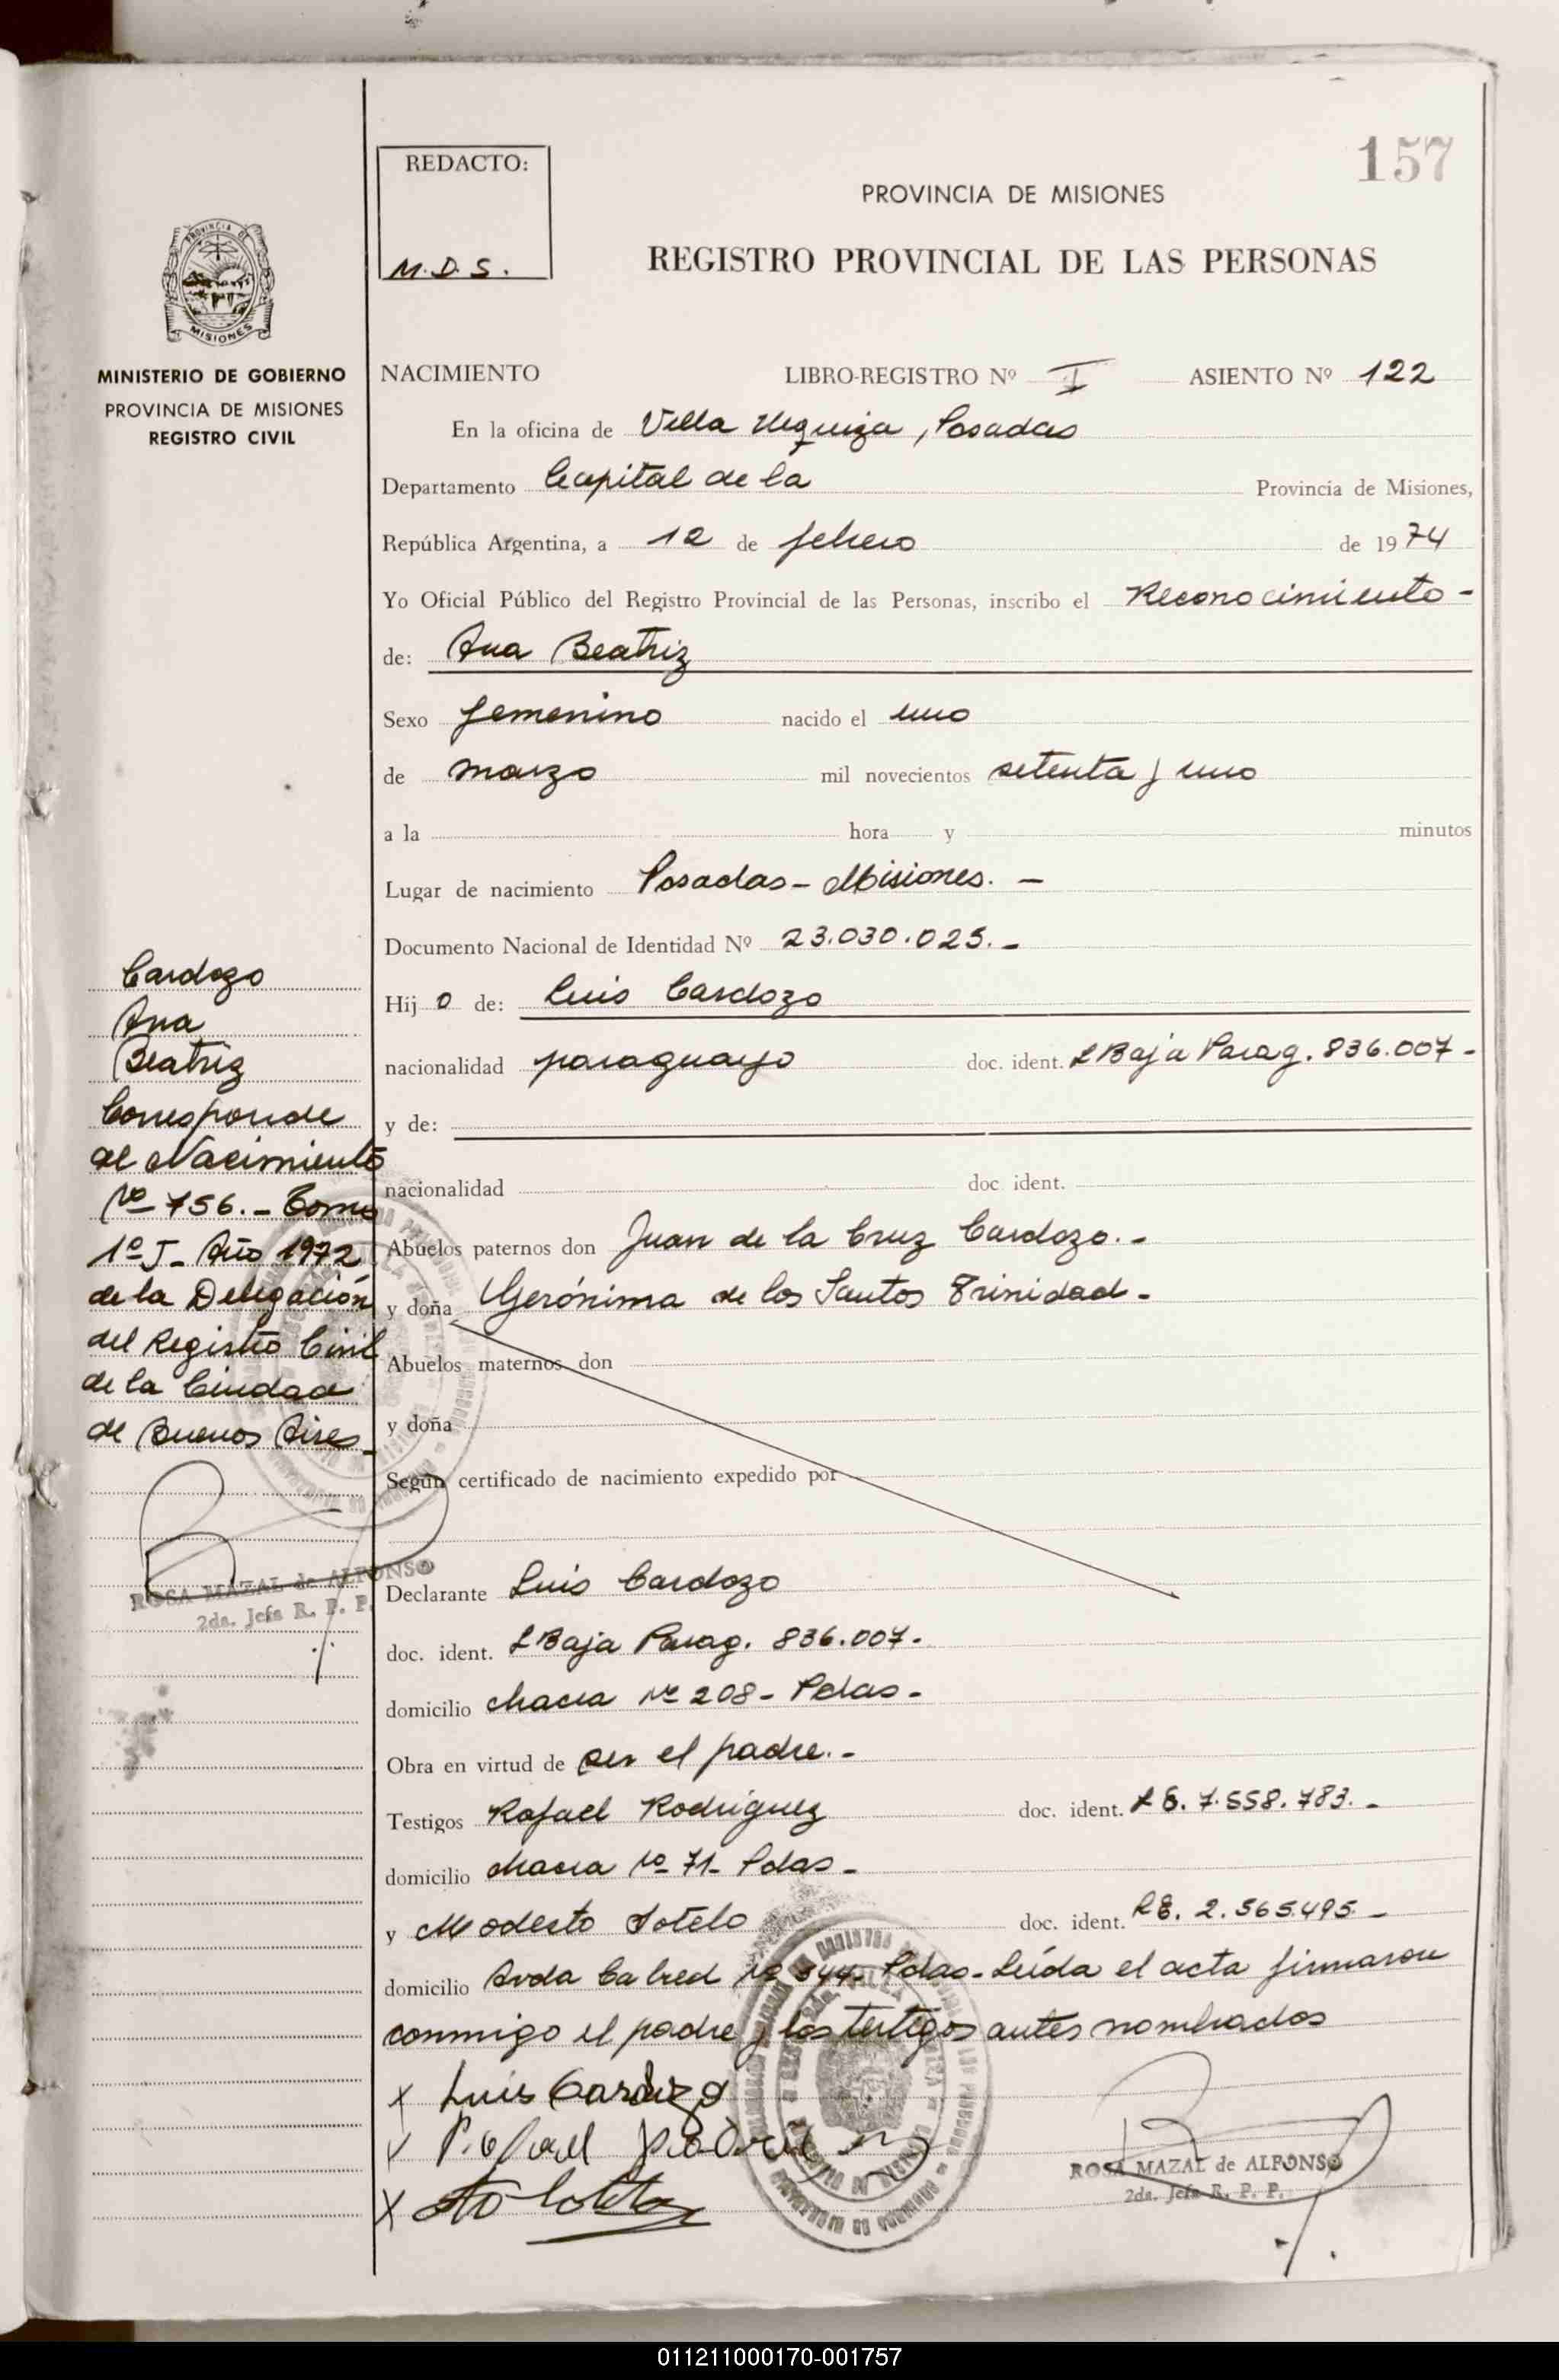 157
REDACTO:
M.D.S.
PROVINCIA DE MISIONES
REGISTRO PROVINCIAL DE LAS PERSONAS
PROVINCIA DE
MISIONES
MINISTERIO DE GOBIERNO
PROVINCIA DE MISIONES
REGISTRO CIVIL
NACIMIENTO LIBRO-REGISTRO Nº I ASIENTO Nº 122
En la oficina de Villa Urquiza, Posadas
Departamento Capital de la Provincia de Misiones,
República Argentina, a 12 de febrero de 1974
Yo Oficial Público del Registro Provincial de las Personas, inscribo el Reconocimiento -
de: Ana Beatriz
Sexo femenino nacido el uno
de marzo mil novecientos setenta y uno
a la hora y minutos
Lugar de nacimiento Posadas - Misiones. -
Documento Nacional de Identidad Nº 23.030.025. -
Hij o de: Luis Cardozo
nacionalidad paraguayo doc. ident. LBaja Parag. 836.007 -
y de:
nacionalidad doc. ident.
Abuelos paternos don Juan de la Cruz Cardozo. -
y doña Gerónima de los Santos Trinidad -
Abuelos maternos don
y doña
Según certificado de nacimiento expedido por
Declarante Luis Cardozo
doc. ident. LBaja Parag. 836.007 -
domicilio chacra Nº 208 - Pdas -
Obra en virtud de ser el padre. -
Testigos Rafael Rodriguez doc. ident. LE. 7.558.783. -
domicilio chacra Nº 71 - Pdas -
y Modesto Sotelo doc. ident. LE. 2.565.495 -
domicilio Avda Cabred Nº 544 - Pdas - Leída el acta firmaron
conmigo el padre y los testigos antes nombrados
x Luis Cardozo
ROSA MAZAL de ALFONSO
2da. Jefa R. P. P.
Cardozo
Ana
Beatriz
Corresponde
al Nacimiento
Nº 756. - Tomo
1º J - Año 1972
de la Delegación
del Registro Civil
de la Ciudad
de Buenos Aires -
ROSA MAZAL de ALFONSO
2da. Jefa R. P. P.
011211000170-001757